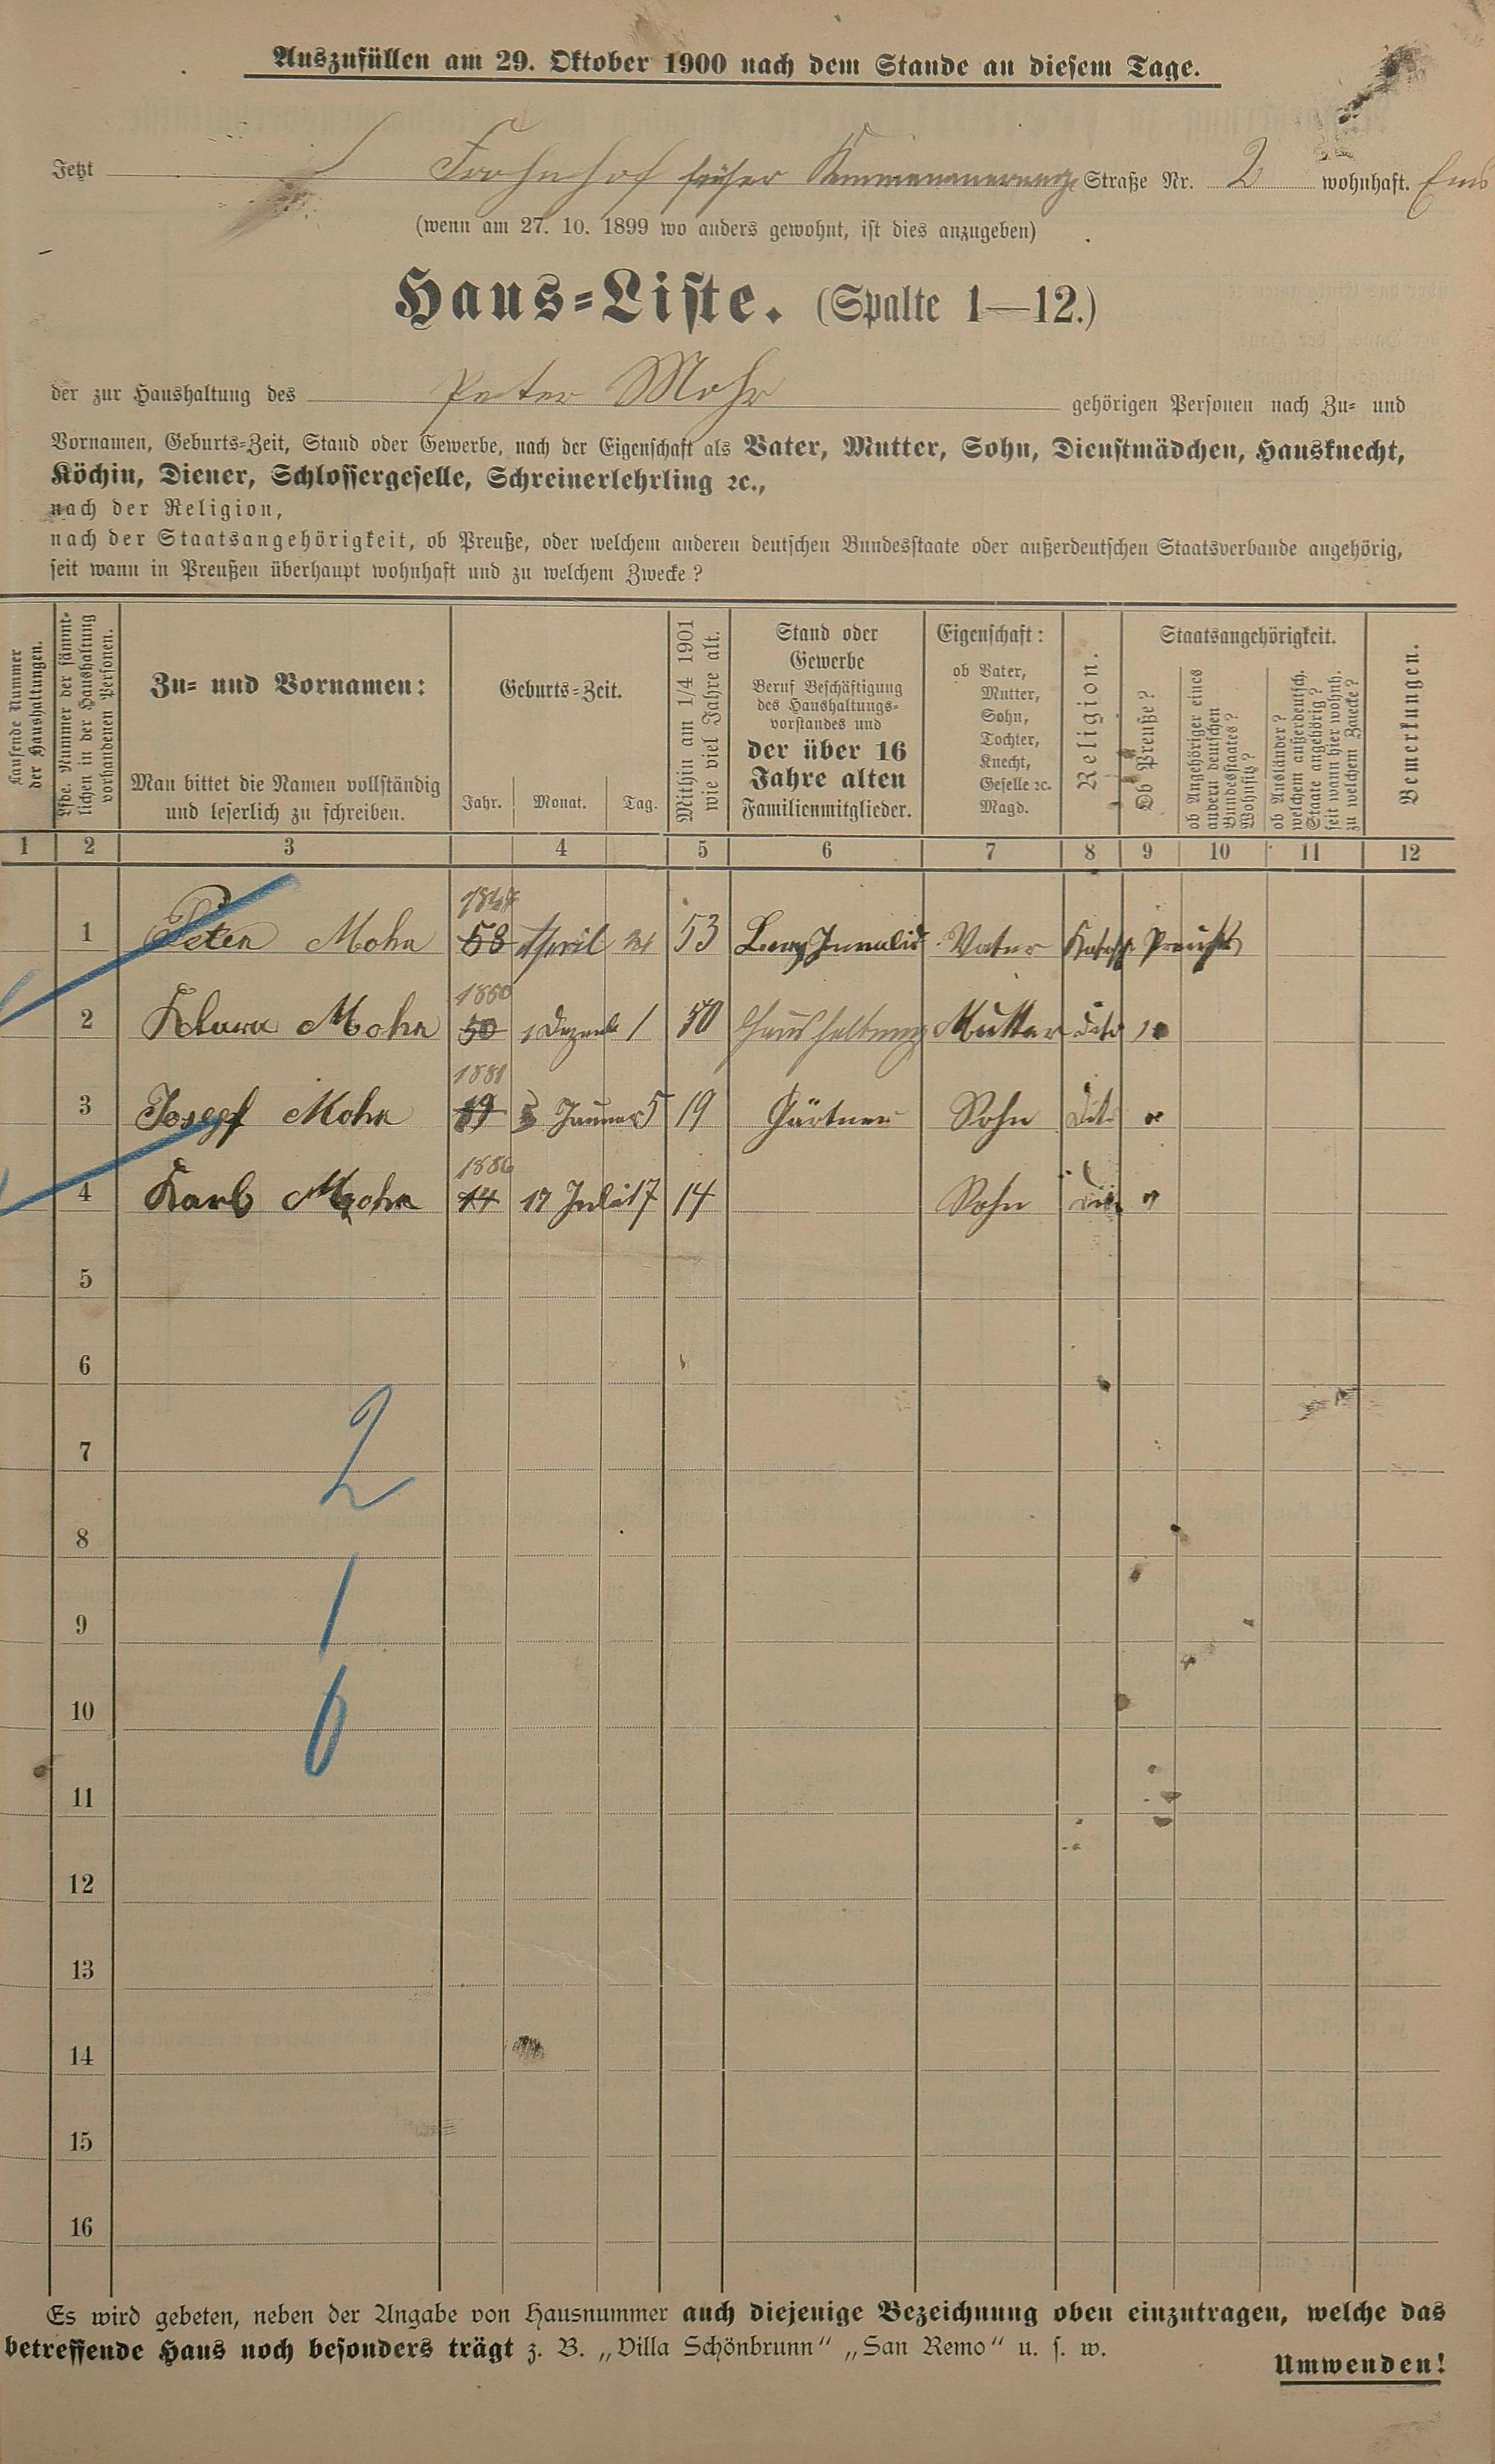 Auszufüllen am 29. Oktober 1900 nach dem Stande an diesem Tage.
Jetzt Frohnhof früher Straße Nr. 2 wohnhaft. Ems
(wenn am 27. 10. 1899 wo anders gewohnt, ist dies anzugeben)
Haus-Liste. (Spalte 1—12.)
der zur Haushaltung des Peter Mohr gehörigen Personen nach Zu- und
Vornamen, Geburts-Zeit, Stand oder Gewerbe, nach der Eigenschaft als Vater, Mutter, Sohn, Dienstmädchen, Hausknecht,
Köchin, Diener, Schlossergeselle, Schreinerlehrling ꝛc.,
nach der Religion,
nach der Staatsangehörigkeit, ob Preuße, oder welchem anderen deutschen Bundesstaate oder außerdeutschen Staatsverbande angehörig,
seit wann in Preußen überhaupt wohnhaft und zu welchem Zwecke?
Laufende Nummer
der Haushaltungen.
Lfde. Nummer der sämmt-
lichen in der Haushaltung
vorhandenen Personen.
Zu- und Vornamen:
Man bittet die Namen vollständig
und leserlich zu schreiben.
Geburts-Zeit.
Jahr. Monat. Tag.
Mithin am 1/4 1901
wie viel Jahre alt.
Stand oder
Gewerbe
Beruf Beschäftigung
des Haushaltungs-
vorstandes und
der über 16
Jahre alten
Familienmitglieder.
Eigenschaft:
ob Vater,
Mutter,
Sohn,
Tochter,
Knecht,
Geselle ꝛc.
Magd.
Religion.
Staatsangehörigkeit.
Ob Preuße?
ob Angehöriger eines
andern deutschen
Bundesstaates?
Wohnsitz?
ob Ausländer?
welchem außerdeutsch.
Staate angehörig?
seit wann hier wohnh.
zu welchem Zwecke?
Bemerkungen.
1 2 3 4 5 6 7 8 9 10 11 12
1847
1 Peter Mohr 58 April 53 Berg Invalid Vater Kathol. Preuße
1850
2 Klara Mohr 50 1 Dezemb 1 50 Haushaltung Mutter dito
1881
3 Josepf Mohr 19 Januar 5 19 Gärtner Sohn dito
1886
4 Karl Mohr 14 17 Juli 17 14 Sohn dito
5
6
7
2
8
9
1
10
11
12
13
14
15
16
Es wird gebeten, neben der Angabe von Hausnummer auch diejenige Bezeichnung oben einzutragen, welche das
betreffende Haus noch besonders trägt z. B. „Villa Schönbrunn“ „San Remo“ u. s. w.
Umwenden!